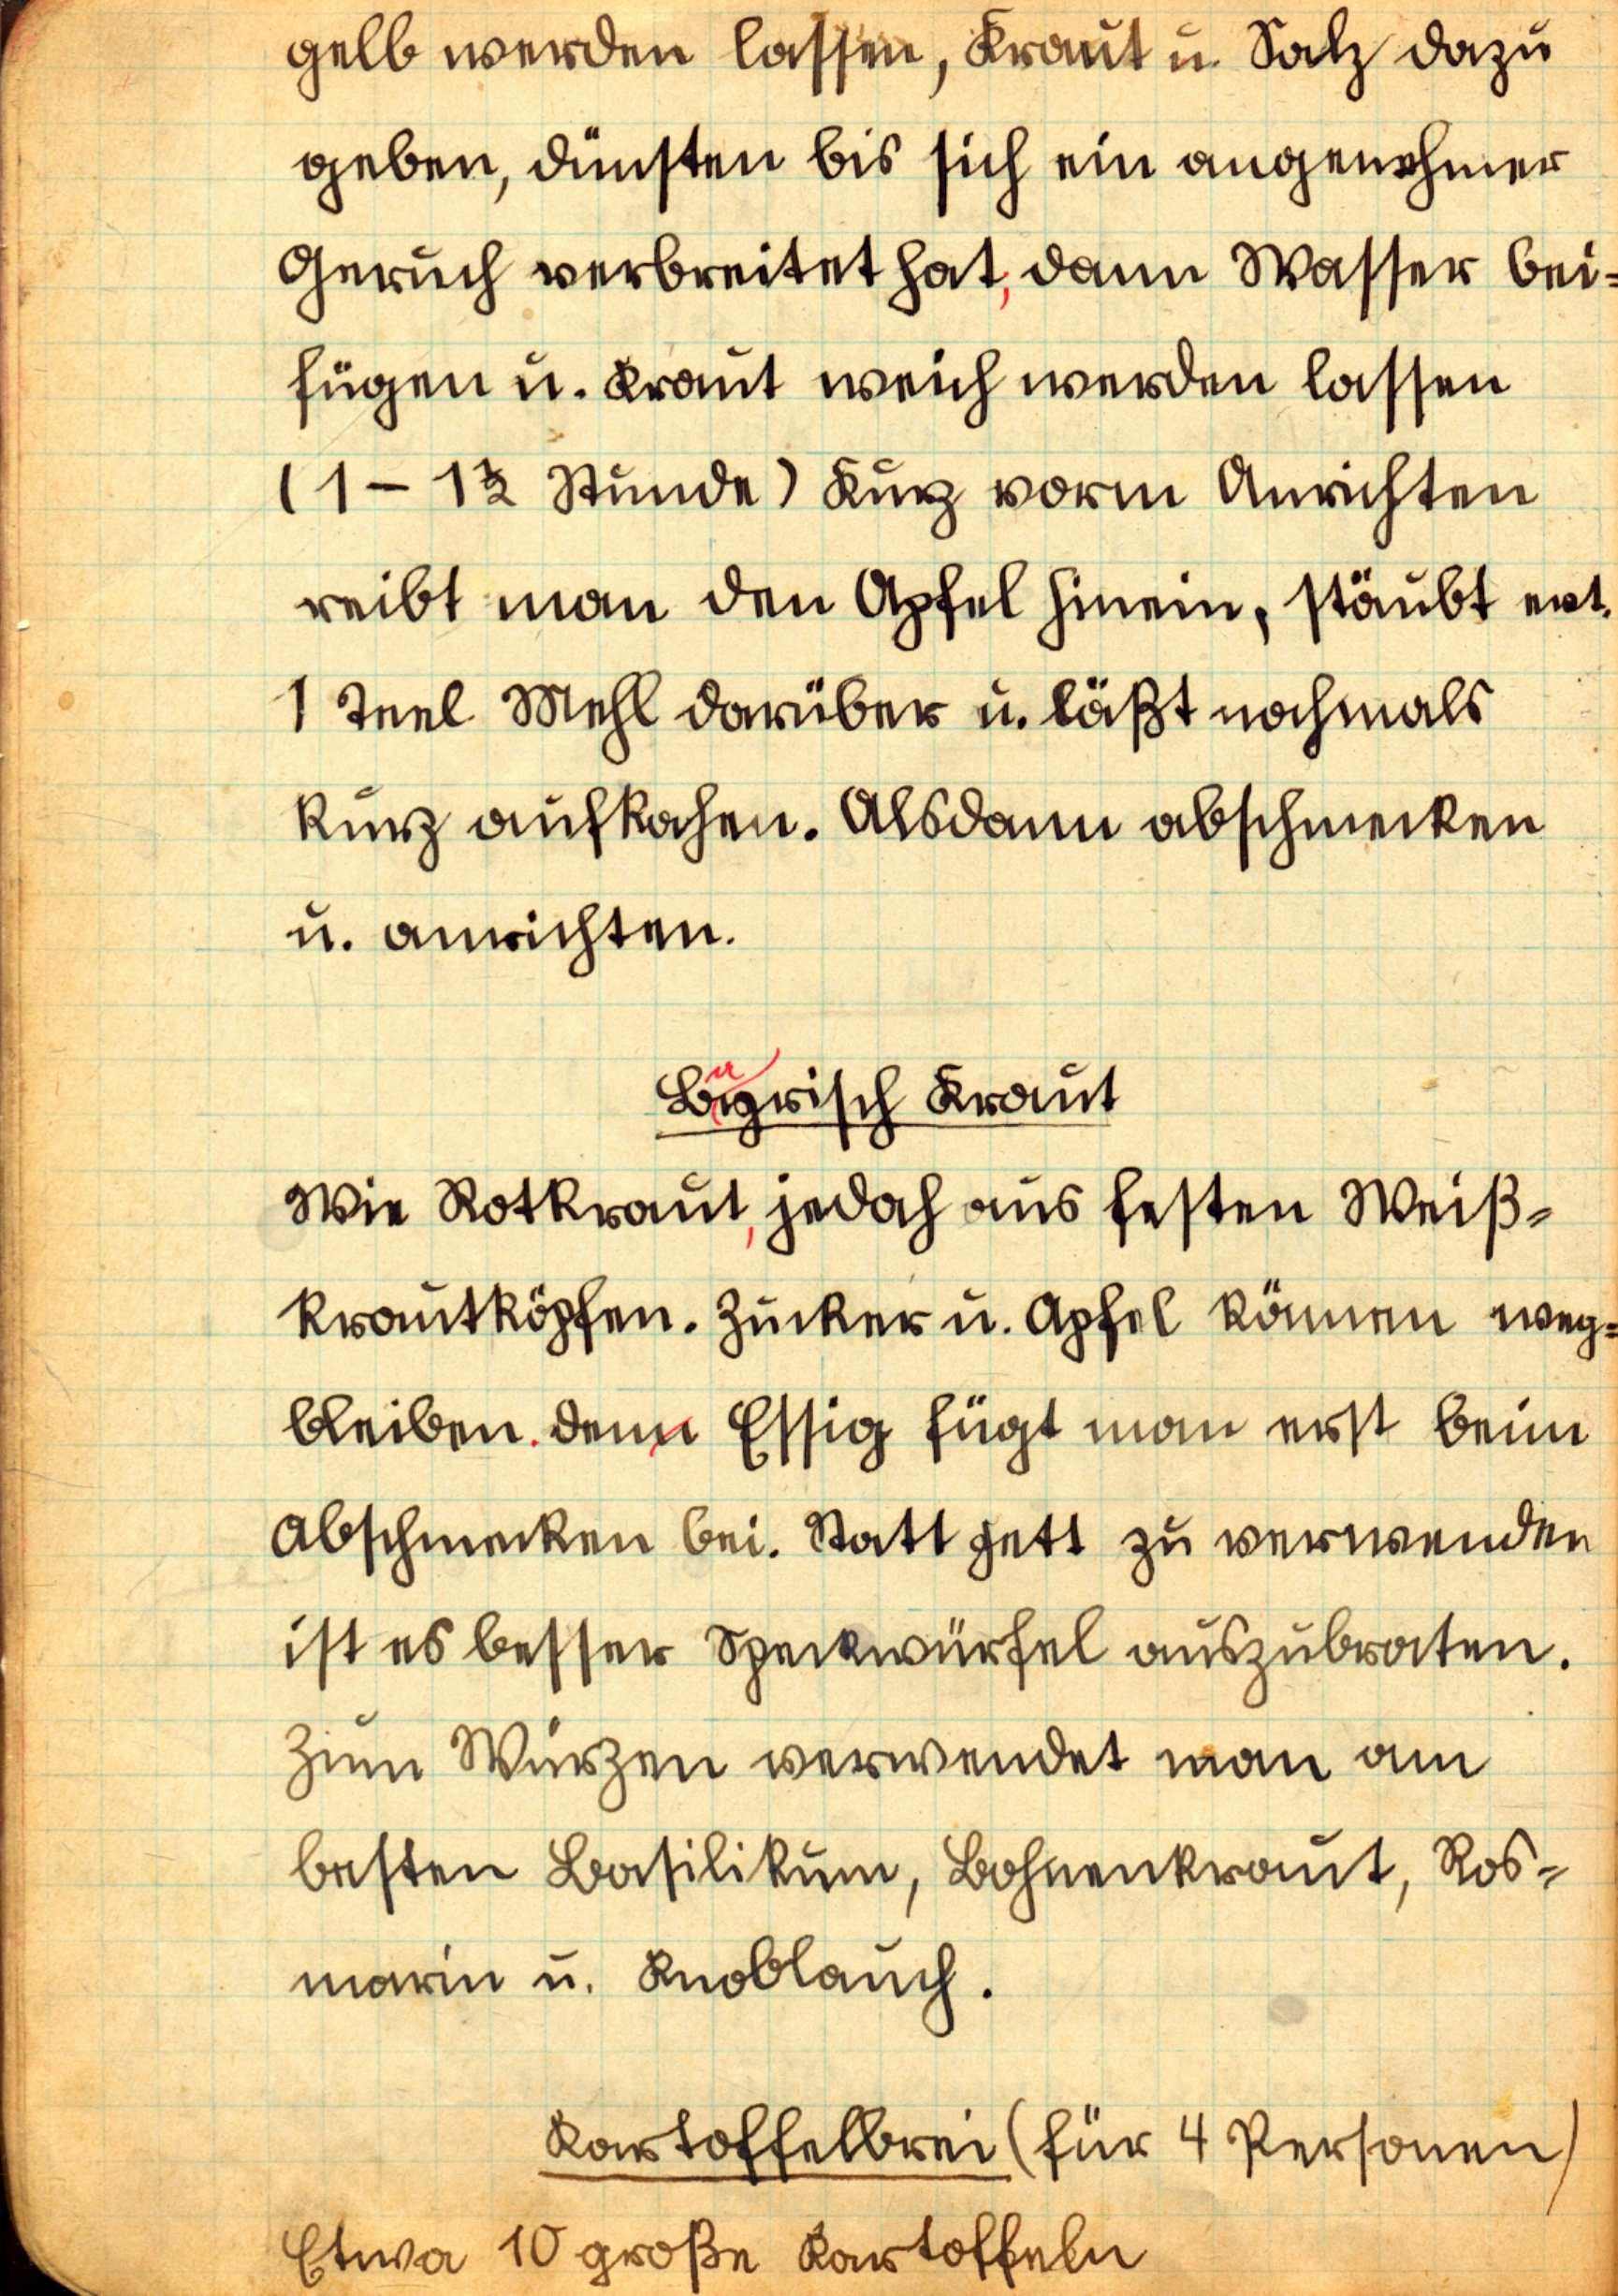 gelb werden lassen, Kraut u. Salz dazu
geben, dünsten bis sich ein angenehmer
Geruch verbreitet hat, dann Wasser bei=
fügen u. Kraut weich werden lassen
(1 – 1½ Stunde) Kurz vorm Anrichten
reibt man den Apfel hinein, stäubt evt.
1 Teel Mehl darüber u. läßt nochmals
kurz aufkochen. Alsdann abschmecken
u. anrichten.
Bayrisch Kraut
Wie Rotkraut, jedoch aus festen Weiß=
krautköpfen. Zucker u. Apfel können weg=
bleiben. den Essig fügt man erst beim
Abschmecken bei. Statt Fett zu verwenden
ist es besser Speckwürfel auszubraten.
Zum Würzen verwendet man am
besten Basilikum, Bohnenkraut, Ros=
marin u. Knoblauch.
Kartoffelbrei (für 4 Personen)
Etwa 10 große Kartoffeln